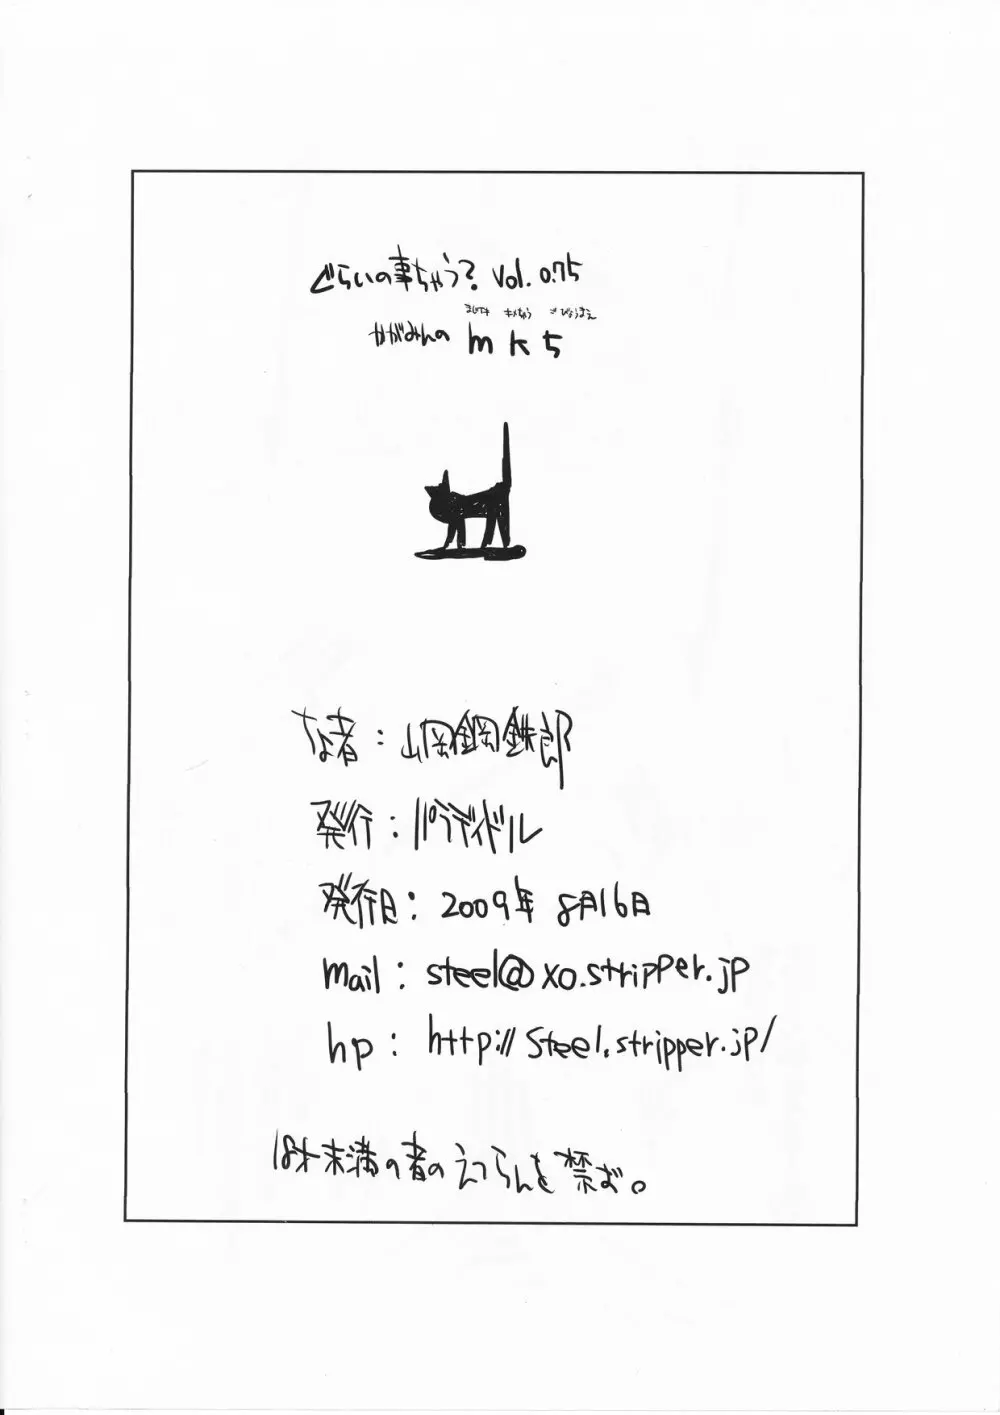 どらいの事ちゃう? Vol. 0.75
かがみんの mk5
ちょ者 : 山岡鋼鉄郎
発行 : パラディドル
発行日 : 2009年 8月16日
mail : steel@xo.stripper.jp
hp : http://steel.stripper.jp/
18才未満の者のえつらんを禁ず。